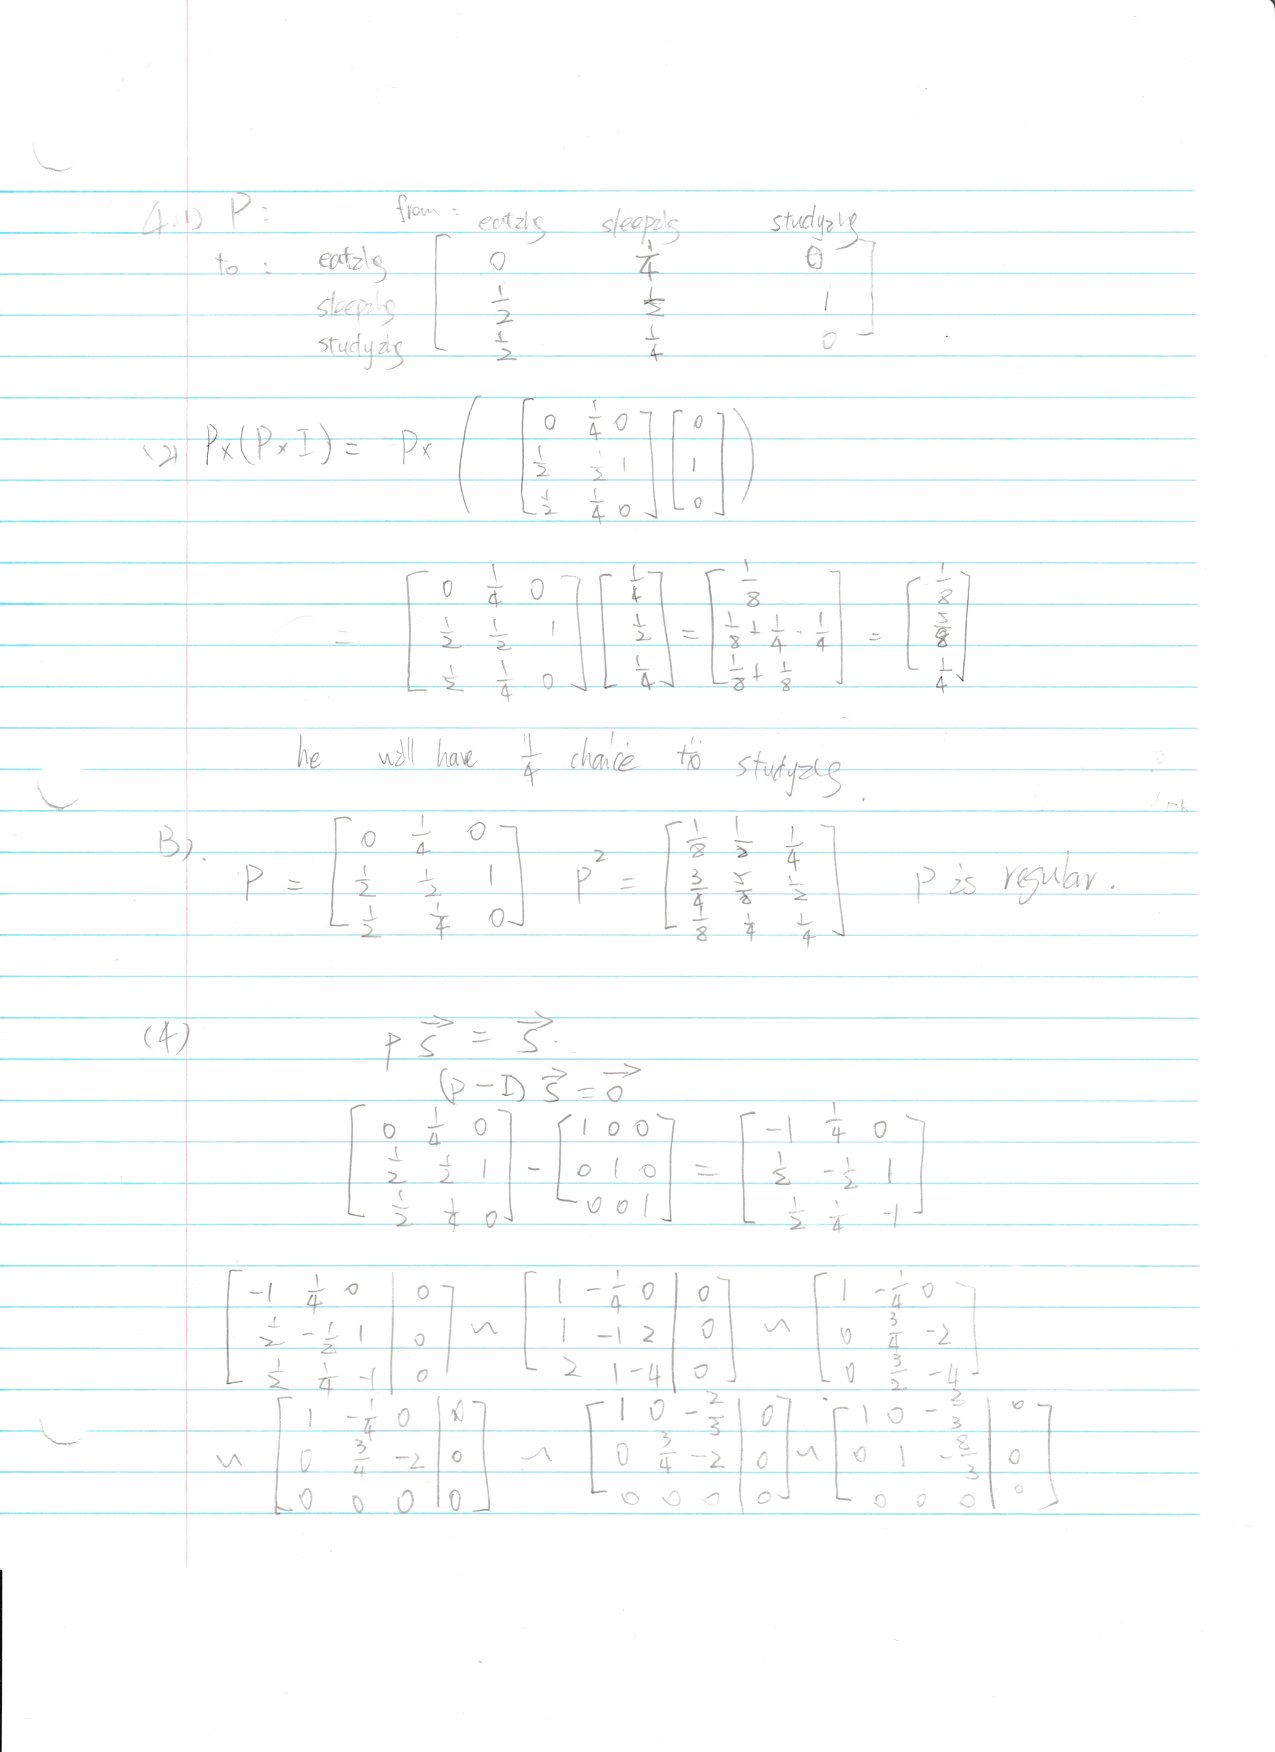 4.1) P: from: eating sleeping studying
to: eating [ 0 1/4 0 ]
sleeping [ 1/2 1/2 1 ]
studying [ 1/2 1/4 0 ]
(2) P×(P×I) = P× ( [ 0 1/4 0 ; 1/2 1/2 1 ; 1/2 1/4 0 ] [ 0 ; 1 ; 0 ] )
= [ 0 1/4 0 ; 1/2 1/2 1 ; 1/2 1/4 0 ] [ 1/4 ; 1/2 ; 1/4 ] = [ 1/8 ; 1/8 + 1/4 + 1/4 ; 1/8 + 1/8 ] = [ 1/8 ; 5/8 ; 1/4 ]
he will have 1/4 chance to studying.
3). P = [ 0 1/4 0 ; 1/2 1/2 1 ; 1/2 1/4 0 ] P² = [ 1/8 1/2 1/4 ; 3/4 5/8 1/2 ; 1/8 1/4 1/4 ] P is regular.
(4) P s⃗ = s⃗.
(P-I) s⃗ = 0⃗
[ 0 1/4 0 ; 1/2 1/2 1 ; 1/2 1/4 0 ] - [ 1 0 0 ; 0 1 0 ; 0 0 1 ] = [ -1 1/4 0 ; 1/2 -1/2 1 ; 1/2 1/4 -1 ]
[ -1 1/4 0 | 0 ; 1/2 -1/2 1 | 0 ; 1/2 1/4 -1 | 0 ] ~ [ 1 -1/4 0 | 0 ; 1 -1 2 | 0 ; 2 1 -4 | 0 ] ~ [ 1 -1/4 0 ; 0 3/4 -2 ; 0 3/2 -4 ]
~ [ 1 -1/4 0 | 0 ; 0 3/4 -2 | 0 ; 0 0 0 | 0 ] ~ [ 1 0 -2/3 | 0 ; 0 3/4 -2 | 0 ; 0 0 0 | 0 ] ~ [ 1 0 -2/3 | 0 ; 0 1 -8/3 | 0 ; 0 0 0 | 0 ]